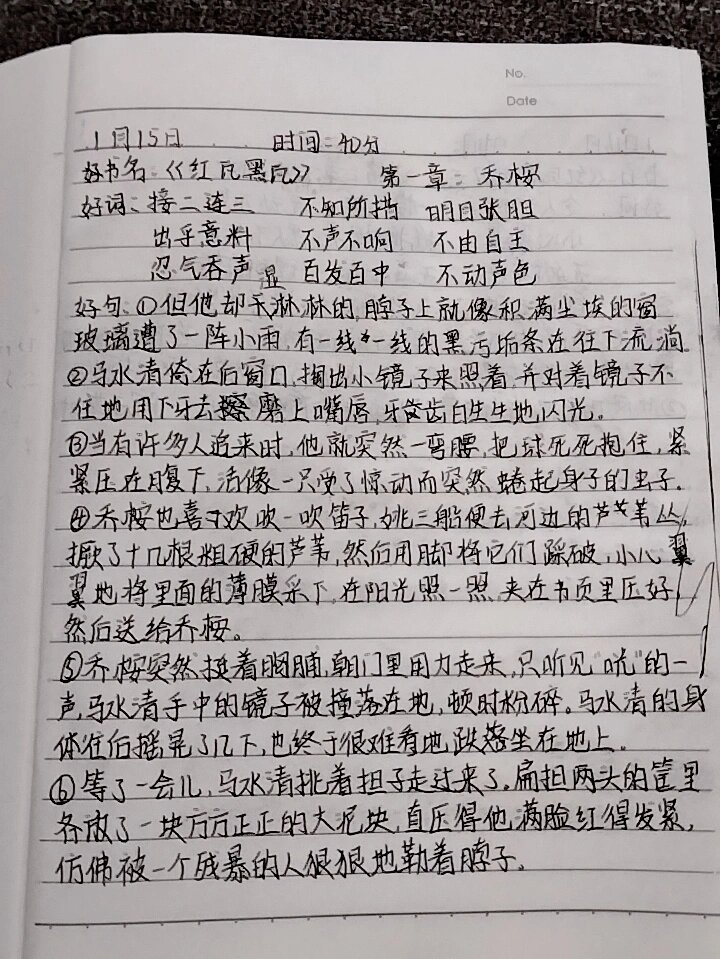 No.
Date
1月15日 时间:40分
好书名:《红瓦黑瓦》 第一章:乔桉
好词:接二连三 不知所措 明目张胆
出乎意料 不声不响 不由自主
忍气吞声 百发百中 不动声色
湿
好句:①但他却禾淋淋的,脖子上就像积满尘埃的窗
玻璃遭了一阵小雨,有一线一线的黑污垢条在往下流淌
②马水清倚在后窗口,掏出小镜子来照着,并对着镜子不
住地用下牙去磨上嘴唇,牙齿白生生地闪光。
③当有许多人追来时,他就突然一弯腰,把球死死抱住,紧
紧压在腹下,活像一只受了惊动而突然蜷起身子的虫子。
④乔桉也喜欢吹一吹笛子,姚三船便去河边的芦苇丛,
撅了十几根粗硬的芦苇,然后用脚将它们踩破,小心翼
翼地将里面的薄膜采下,在阳光照一照,夹在书页里压好,
然后送给乔桉。
⑤乔桉突然挺着胸脯,朝门里用力走来,只听见"咣"的一
声,马水清手中的镜子被撞落在地,顿时粉碎。马水清的身
体往后摇晃了几下,也终于很难看地跌落坐在地上。
⑥等了一会儿,马水清挑着担子走过来了,扁担两头的筐里
各放了一块方方正正的大泥块,直压得他满脸红得发紧,
仿佛被一个残暴的人狠狠地勒着脖子。